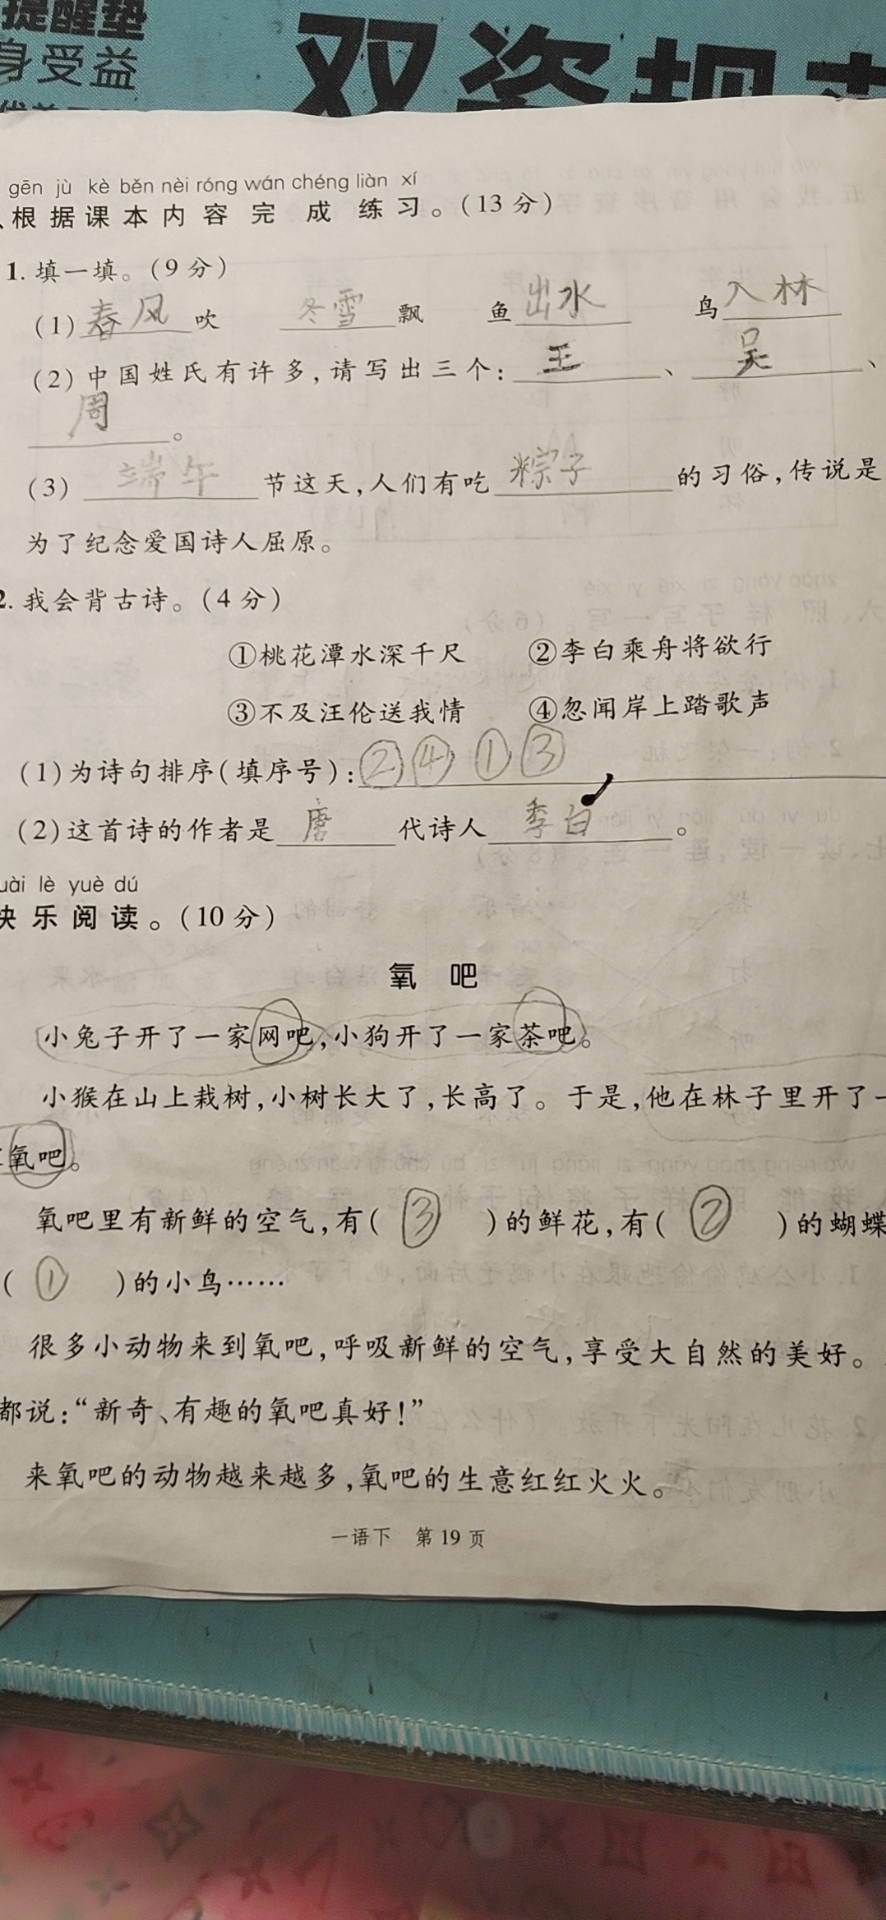 提醒垫
身受益
双姿
gēn jù kè běn nèi róng wán chéng liàn xí
根据课本内容完成练习。(13分)
1. 填一填。(9分)
(1) 春风 吹 冬雪 飘 鱼 出水 鸟 入林
(2) 中国姓氏有许多,请写出三个: 王 、 吴 、
周 。
(3) 端午 节这天,人们有吃 粽子 的习俗,传说是
为了纪念爱国诗人屈原。
2. 我会背古诗。(4分)
①桃花潭水深千尺 ②李白乘舟将欲行
③不及汪伦送我情 ④忽闻岸上踏歌声
(1)为诗句排序(填序号): ②④①③
(2)这首诗的作者是 唐 代诗人 季白 。
uài lè yuè dú
快乐阅读。(10分)
氧 吧
小兔子开了一家网吧,小狗开了一家茶吧。
小猴在山上栽树,小树长大了,长高了。于是,他在林子里开了一
氧吧。
氧吧里有新鲜的空气,有( ③ )的鲜花,有( ② )的蝴蝶
( ① )的小鸟……
很多小动物来到氧吧,呼吸新鲜的空气,享受大自然的美好。
都说:“新奇、有趣的氧吧真好!”
来氧吧的动物越来越多,氧吧的生意红红火火。
一语下 第19页